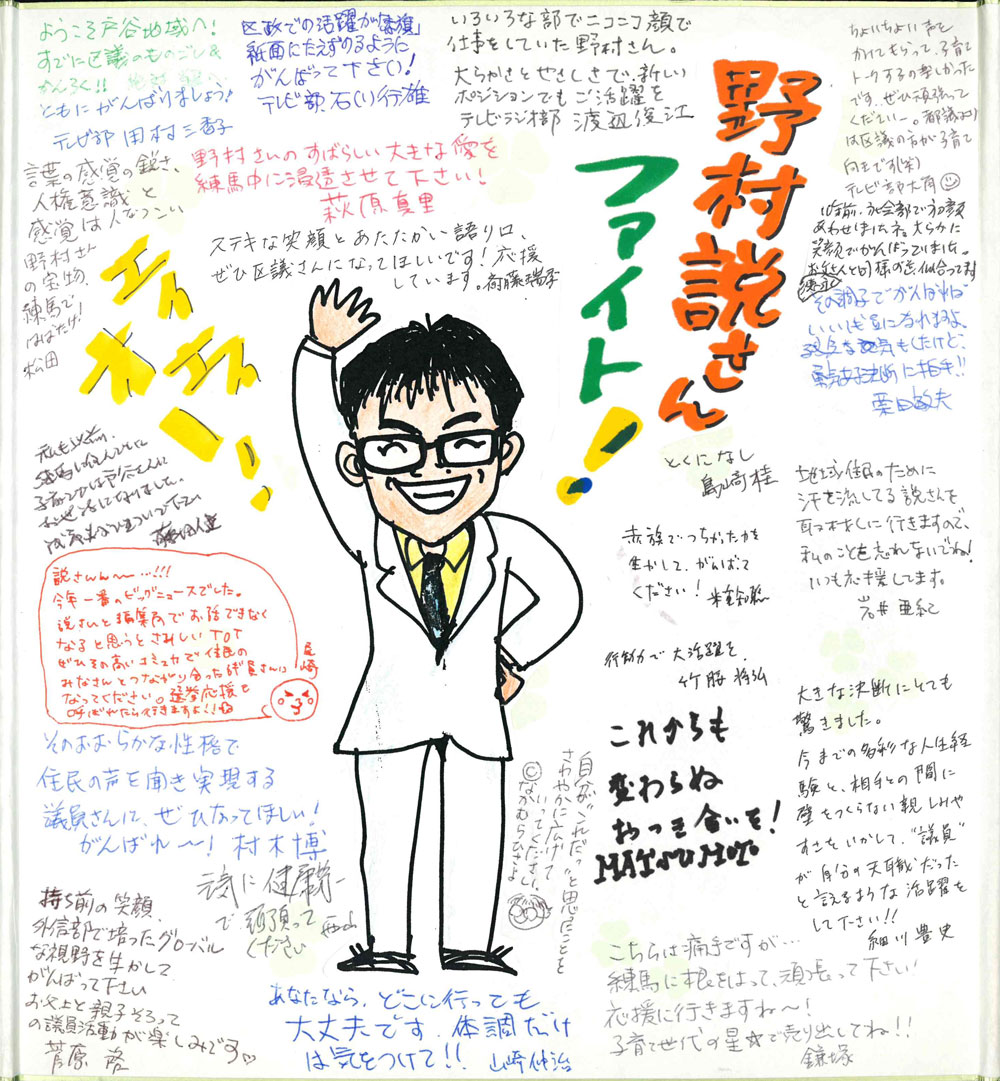 野村説さん
ファイト!
エイ
エイ
オー!
ようこそ戸谷地域へ!
すでに区議のものごし&
かんろく!!
ともにがんばりましょう!
テレビ部 田村三香子
区政での活躍が「赤旗」
紙面にたえずのるように
がんばって下さい!
テレビ部 石川行雄
いろいろな部でニコニコ顔で
仕事をしていた野村さん。
大らかさとやさしさで、新しい
ポジションでもご活躍を
テレビ・ラジオ部 渡辺俊江
ちょいちょい声を
かけてもらって、子育て
トークするの楽しかった
です。ぜひ頑張って
くださいー。都議より
は区議の方が子育て
向きです(笑)
テレビ部 大角
言葉の感覚の鋭さ、
人権意識と
感覚は人なつこい
野村さん
の宝物。
練馬で
はばたけ!
松田
野村さんのすばらしい大きな愛を
練馬中に浸透させて下さい!
萩原真里
ステキな笑顔とあたたかい語り口、
ぜひ区議さんになってほしいです!応援
しています。斎藤瑞季
10年前、社会部で初顔
あわせしましたネ。大らかに
笑顔でがんばってました。
その調子でがんばれば
いい議員になれますよ
勇気ある決断に拍手!!
栗田敏夫
とくになし
島崎桂
赤旗でつちかった力を
生かして、がんばって
ください!
地域住民のために
汗を流してる説さんを
取材しに行きますので、
私のことを忘れないでね!
いつも応援してます。
岩井亜紀
子育てでは戸谷さんに
お世話になりました。
説さんん〜…!!!
今年一番のビッグニュースでした。
説さんと編集局でお話できなく
なると思うとさみしいTOT
ぜひその高いコミュ力で住民の
みなさんとつながり合った議員さんに
なってください。選挙応援も
呼ばれたら行きますよ!!
尾崎
行動力で大活躍を
竹腰将弘
これからも
変わらぬ
おつき合いを!
MATSUMOTO
大きな決断にとても
驚きました。
今までの多彩な人生経
験と、相手との間に
壁をつくらない親しみや
すさをいかして、“議員”
が自分の天職だった
と言えるような活躍を
して下さい!!
細川豊史
そのおおらかな性格で
住民の声を聞き実現する
議員さんに、ぜひなってほしい!
がんばれ〜! 村木博
自分が“これだっ”と思ったことを
さわやかに広げて
いってください。
©なかむらひさよ
元気に健康第一
で頑張って
ください
西山
持ち前の笑顔、
外信部で培ったグローバル
な視野を生かして
がんばって下さい
お父上と親子そろって
の議員活動が楽しみです♡
菅原啓
あなたなら、どこに行っても
大丈夫です。体調だけ
は気をつけて!! 山崎伸治
こちらは痛手ですが…
練馬に根をはって、頑張って下さい!
応援に行きますね〜!
子育て世代の星☆で売り出してね!!
鎌塚